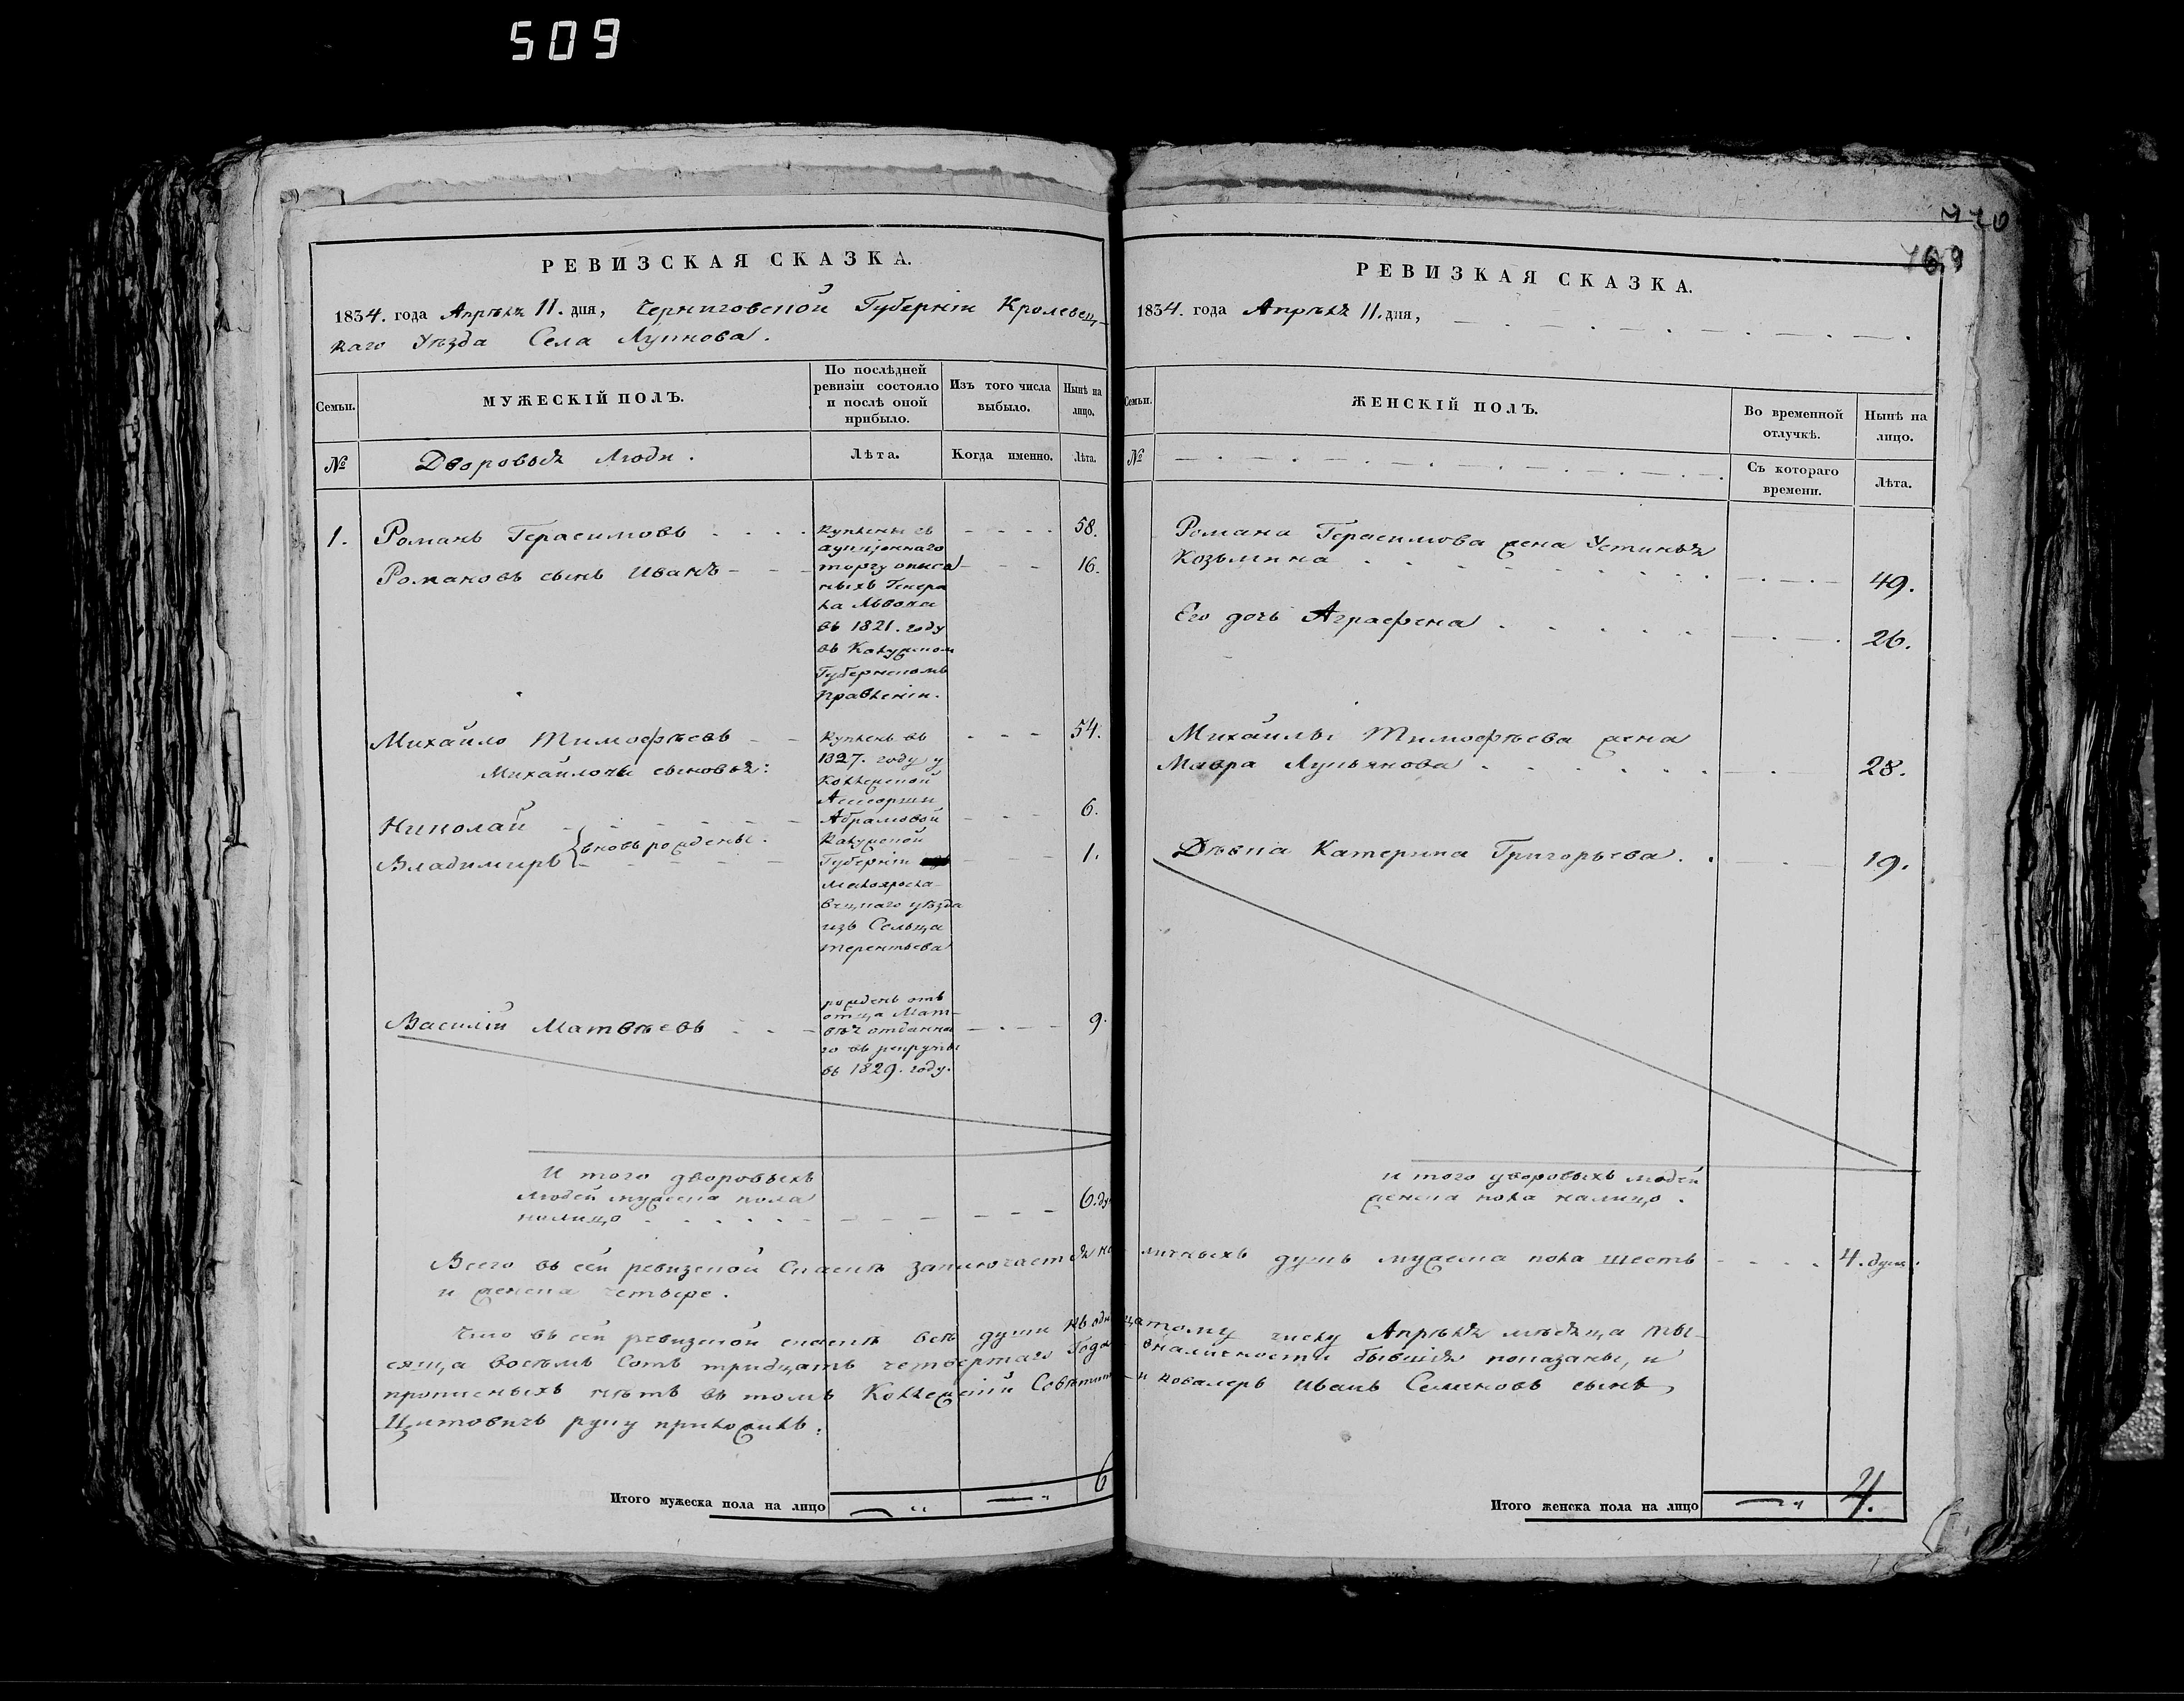 509
РЕВИЗСКАЯ СКАЗКА.
1834. года Апрѣля 11. дня, Черниговской Губерніи Кролевец-
каго Уѣзда Села Лукнова.
Семьи.
МУЖЕСКІЙ ПОЛЪ.
По послѣдней
ревизіи состояло
и послѣ оной
прибыло.
Изъ того числа
выбыло.
Нынѣ на
лицо.
№
Дворовыя Люди.
Лѣта.
Когда именно.
Лѣта.
1. Романъ Герасимовъ 58.
Романовъ сынъ Иванъ 16.
куплены съ
аукціоннаго
торгу описа
ныхъ Генера
ла Львова
въ 1821. году
въ Калужском
Губернскомъ
правленіи.
Михайло Тимофѣевъ 54.
Михайлочи сыновья:
Николай 6.
вновь рождены.
Владимиръ 1.
купленъ въ
1827. году у
Коллежской
Асесорши
Абрамовой
Калужской
Губерніи
Малояросла-
вецкаго уѣзда
изъ Сельца
Терентьева
Василій Матвѣевъ 9.
рожденъ отъ
отца Мат-
вѣя отданна
го въ рекруты
въ 1829. году.
И того дворовыхъ
людей мужеска пола
налицо 6. ду
РЕВИЗКАЯ СКАЗКА.
1834. года Апрѣля 11. дня,
Семьи.
ЖЕНСКІЙ ПОЛЪ.
Во временной
отлучкѣ.
Нынѣ на
лицо.
№
Съ котораго
времени.
Лѣта.
Романа Герасимова жена Устинья
Козьмина 49.
Его дочь Аграфена 26.
Михайлы Тимофѣева жена
Мавра Лукьянова 28.
Дѣвка Катерина Григорьева. 19.
и того дворовыхъ людей
женска пола налицо.
4. души.
Всего въ сей ревизской Сказкѣ заключается наличныхъ душъ мужеска пола шесть
и женска четыре.
Что въ сей ревизской сказкѣ всѣ души къ одинадцатому числу Апрѣля мѣсяца ты-
сяща восемь Сотъ тридцать четвертаго Года вналичности бывшія показаны, и
прописныхъ нѣтъ въ томъ Коллежскій Совѣтникъ и кавалеръ Иванъ Семеновъ сынъ
Цитовичъ руку приложилъ.
Итого мужеска пола на лицо 6
Итого женска пола на лицо 4.